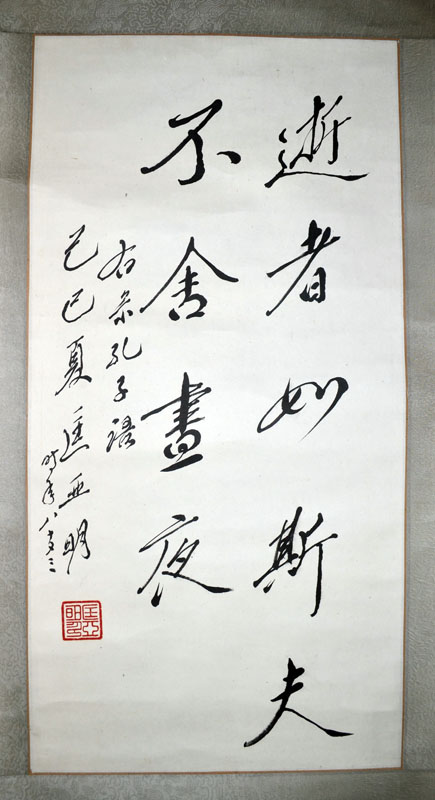 逝者如斯夫
不舍晝夜
右录孔子语
己巳夏匡亚明
时年八十三
匡亞
明印